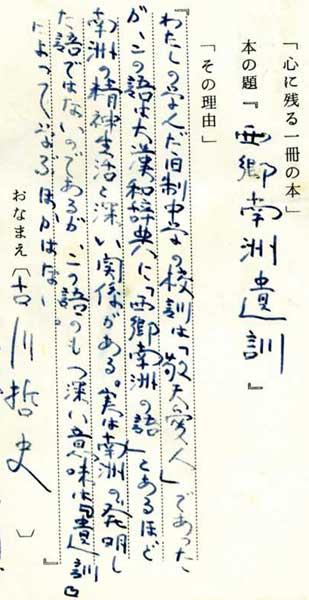 「心に残る一冊の本」
本の題『西郷南洲遺訓』
「その理由」
『わたしの学んだ旧制中学の校訓は「敬天愛人」であった
が、この語は大漢和辞典に「西郷南洲の語」とあるほど
南洲の精神生活と深い関係がある。実は南洲の発明し
た語ではないのであるが、この語のもつ深い意味は『遺訓』
によってまなぶほかはない。』
おなまえ〔古川哲史〕